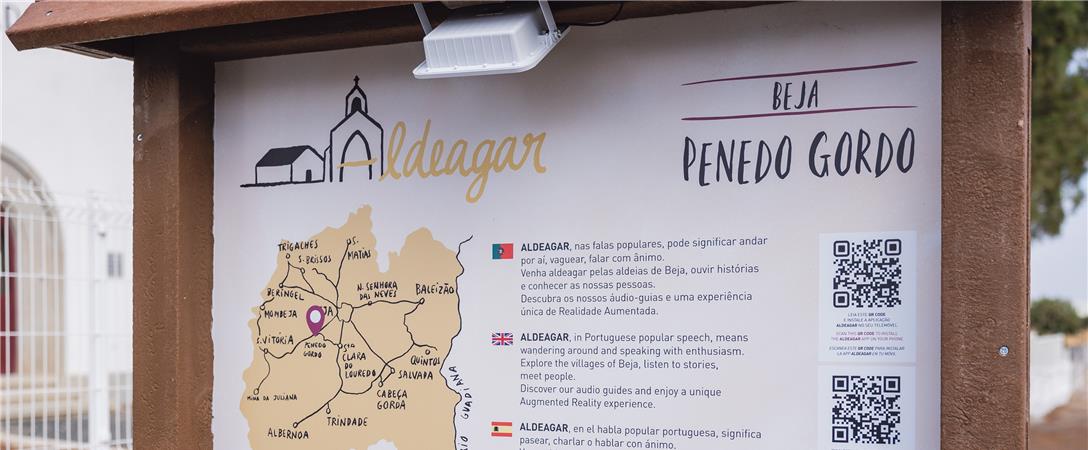 Aldeagar
BEJA
PENEDO GORDO
TRIGACHES
S. BRISSOS
S. MATIAS
BERINGEL
N. SENHORA DAS NEVES
BALEIZÃO
MOMBEJA
JA
S. VITÓRIA
PENEDO GORDO
STA CLARA DO LOUREDO
QUINTOS
SALVADA
CABEÇA GORDA
MINA DA JULIANA
TRINDADE
ALBERNOA
RIO GUADIANA
ALDEAGAR, nas falas populares, pode significar andar
por aí, vaguear, falar com ânimo.
Venha aldeagar pelas aldeias de Beja, ouvir histórias
e conhecer as nossas pessoas.
Descubra os nossos áudio-guias e uma experiência
única de Realidade Aumentada.
ALDEAGAR, in Portuguese popular speech, means
wandering around and speaking with enthusiasm.
Explore the villages of Beja, listen to stories,
meet people.
Discover our audio guides and enjoy a unique
Augmented Reality experience.
ALDEAGAR, en el habla popular portuguesa, significa
pasear, charlar o hablar con ánimo.
LEIA ESTE QR CODE
E INSTALE A APLICAÇÃO
ALDEAGAR NO SEU TELEMÓVEL
SCAN THIS QR CODE TO INSTALL
THE ALDEAGAR APP ON YOUR PHONE
ESCANEA ESTE QR CODE PARA INSTALAR
LA APP ALDEAGAR EN TU MÓVIL